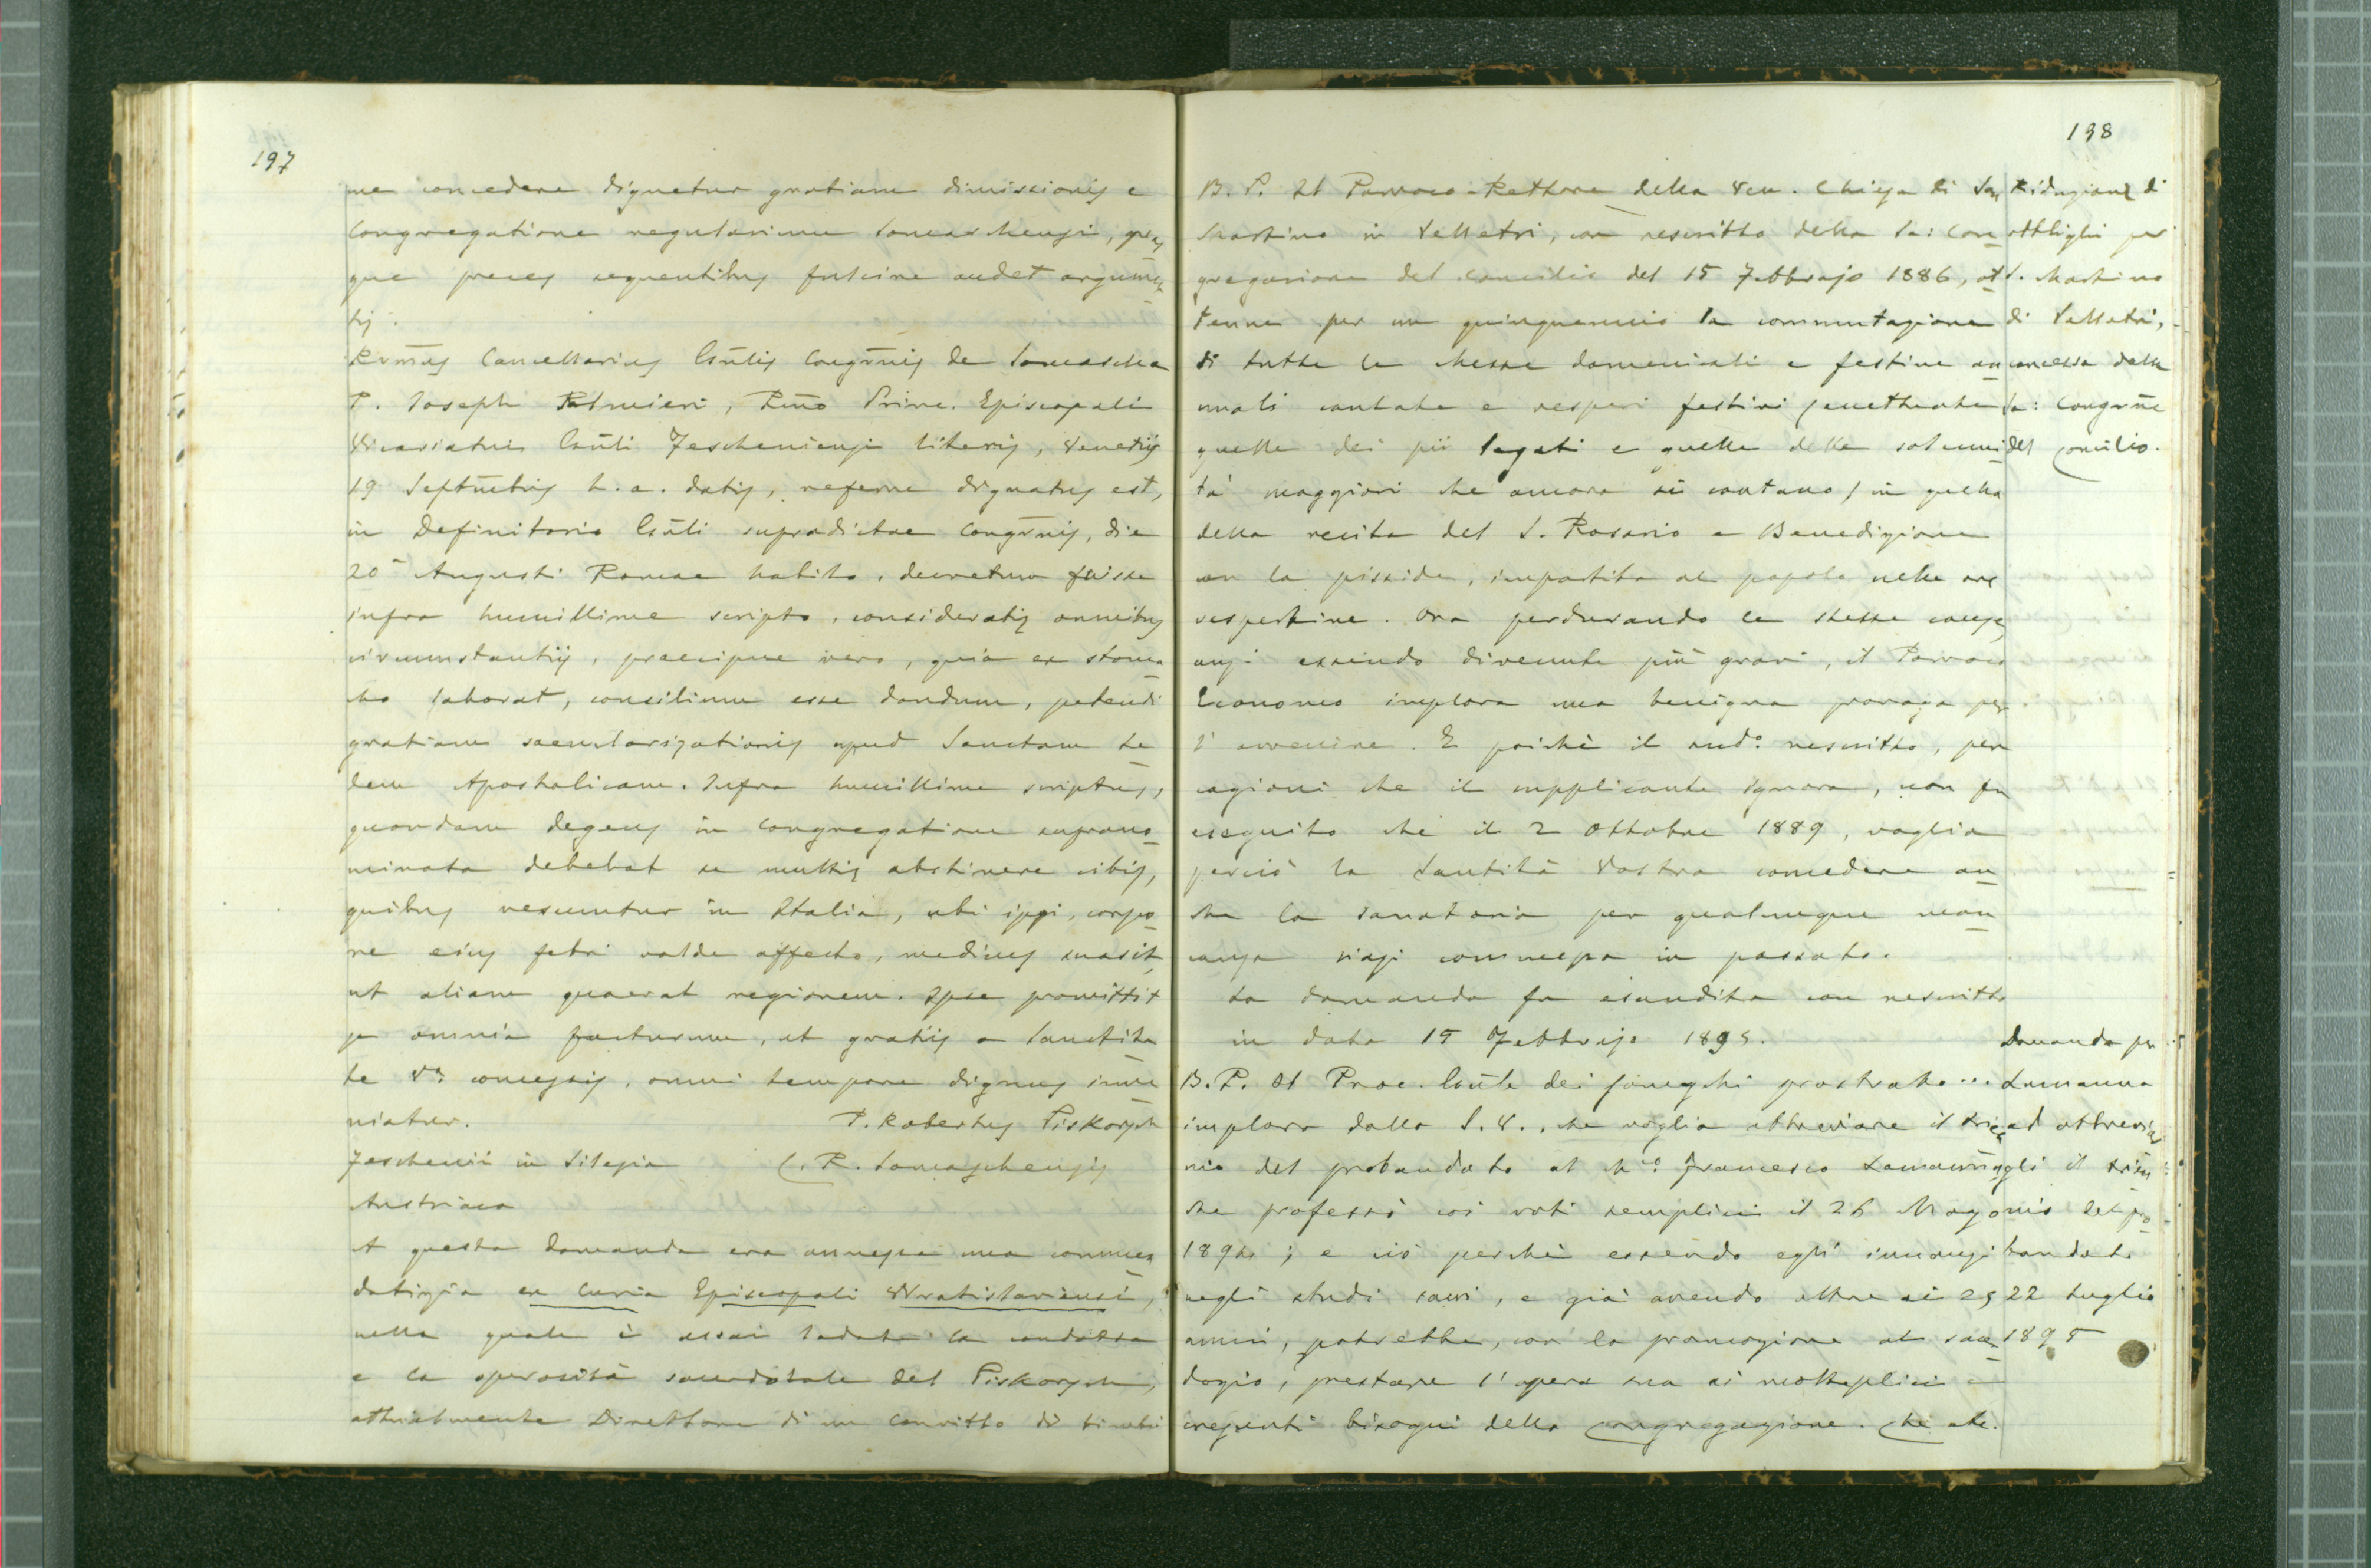 197
me concedere dignetur gratiam dimissionis e
Congregatione regularium Somaschensi, quas
que preces sequentibus fulcire audet argumen
tis.
Rvmus Cancellarius Gnlis Congrnis de Somascha
P. Joseph Palmieri, Rmo Princ. Episcopali
Vicariatui Gnli Tescheniensi literis, Venetiis
19 Septmbris h. a. datis, referre dignatus est,
in Definitorio Gnli supradictae Congrnis, die
20a Augusti Romae habito, decretum fuisse
infra humillime scripto, consideratis omnibus
circumstantiis, praecipue vero, quia ex stoma
cho laborat, consilium esse dandum, petendi
gratiam saecularizationis apud Sanctam Se
dem Apostolicam. Infra humillime scriptus,
quondam degens in Congregatione suprano
minata debebat se multis abstinere cibis,
quibus vescuntur in Italia, ubi ipsi, corpo
re eius febri valde affecto, medicus suasit,
ut aliam quaerat regionem. Ipse promittit
se omnia facturum, ut gratiis a Sanctita
te Va concessis, omni tempore dignus inve
niatur. P. Robertus Piskorzch
Teschenii in Silesia C. R. Somaschensis
Austriaca
A questa domanda era annessa una commen
datizia ex Curia Episcopali Wratislaviensi,
nella quale è assai lodata la condotta
e la operosità sacerdotale del Piskorzch,
attualmente Direttore di un Convitto di
198
B. P. Il Parroco-Rettore della Ven. Chiesa di San
Martino in Velletri, con rescritto della Sa: Con
gregazione del Concilio del 15 Febbrajo 1886, ot
tenne per un quinquennio la commutazione
di tutte le Messe domenicali e festive an
nuali cantate e vesperi festivi (eccettuate
quelle dei pii legati e quelle delle solenni
tà maggiori che ancora si cantano) in quella
della recita del S. Rosario e Benedizione
con la pisside, impartita al popolo nelle ore
vespertine. Ora perdurando le stesse cause,
anzi essendo divenute più gravi, il Parroco
Economo implora una benigna proroga per
l'avvenire. E poichè il sudo rescritto, per
cagioni che il supplicante ignora, non fu
eseguito che il 2 Ottobre 1889, voglia
perciò la Santità Vostra concedere an
che la sanatoria per qualunque man
canza siasi commessa in passato.
La domanda fu esaudita con rescritto
in data 15 Febbrajo 1895.
B. P. Il Proc. Gnle dei Somaschi prostrato...
implora dalla S. V., che voglia abbreviare il trien
nio del probandato al Mo Francesco Lamanna
che professò coi voti semplici il 26 Maggo
1894; e ciò perchè essendo egli innanzi
negli studi sacri, e già avendo oltre ai 25
anni, potrebbe, con la promozione al sacer
dozio, prestare l'opera sua ai molteplici e
crescenti bisogni della Congregazione. Che etc.
Riduzione di
obblighi per
S. Martino
di Velletri,
concessa dalla
Sa: Congrne
del Concilio.
Domanda per
Lamanna
ad abbreviar
gli il trien
nio del pro
bandato
22 Luglio
1895